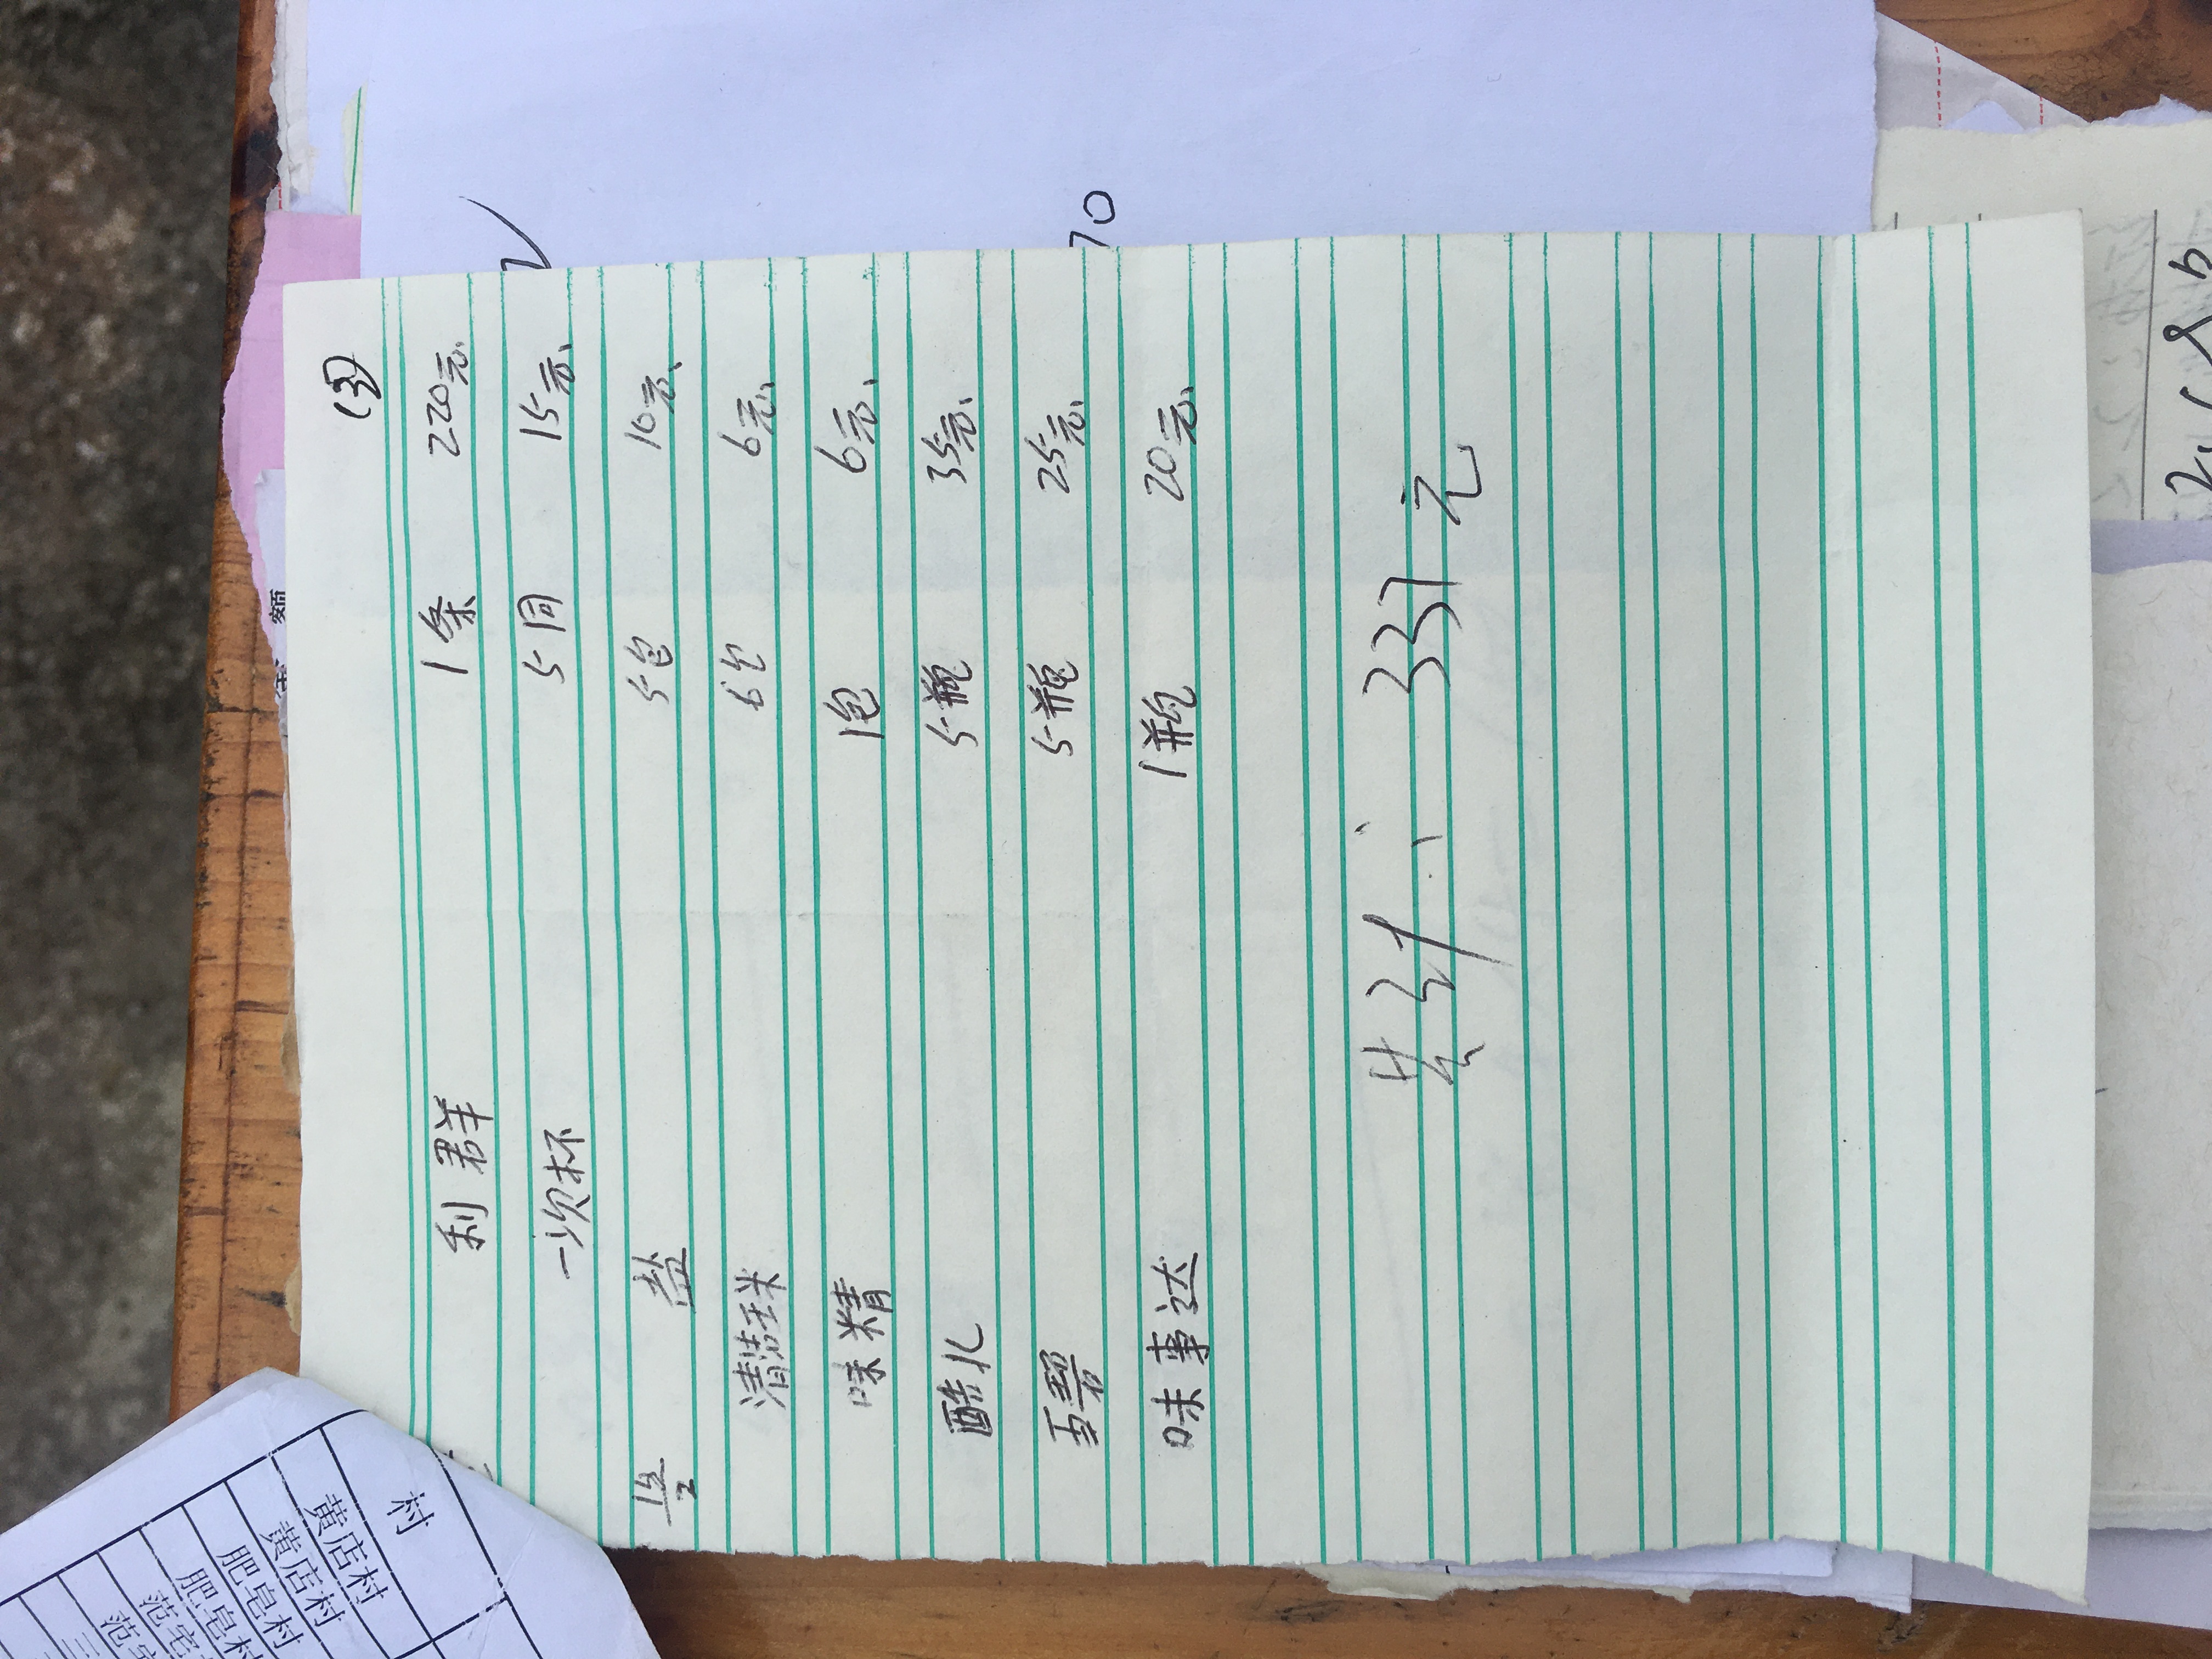 村
黄店村
黄店村
肥皂村
肥皂村
范宅
范宅
三
额
(3)
利群 1条 220元
一次杯 5同 15元
15/2 盐 5包 10元
清洁球 6包 6元
味精 1包 6元
酷儿 5瓶 35元
雪碧 5瓶 25元
味事达 1瓶 20元
共计: 337元
70